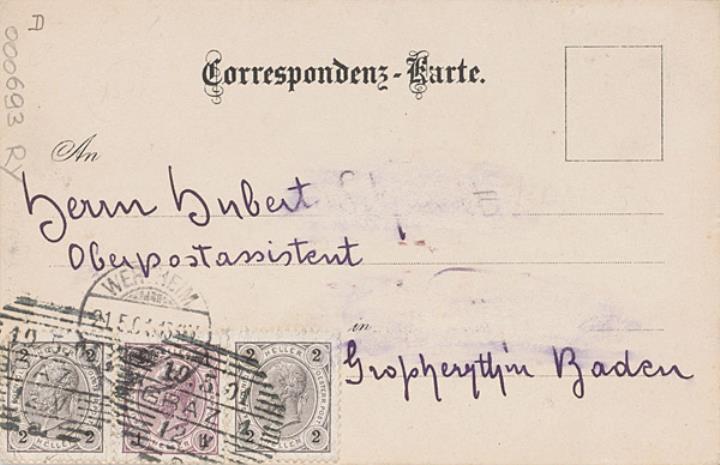 D
000693 Ry
Correspondenz-Karte.
An
Herrn Hubert
Oberpostassistent
WERTHEIM
21.5.01
in
Baden
19.5.01
GRAZ
12
2 HELLER 2
1 HELLER 1
2 HELLER 2